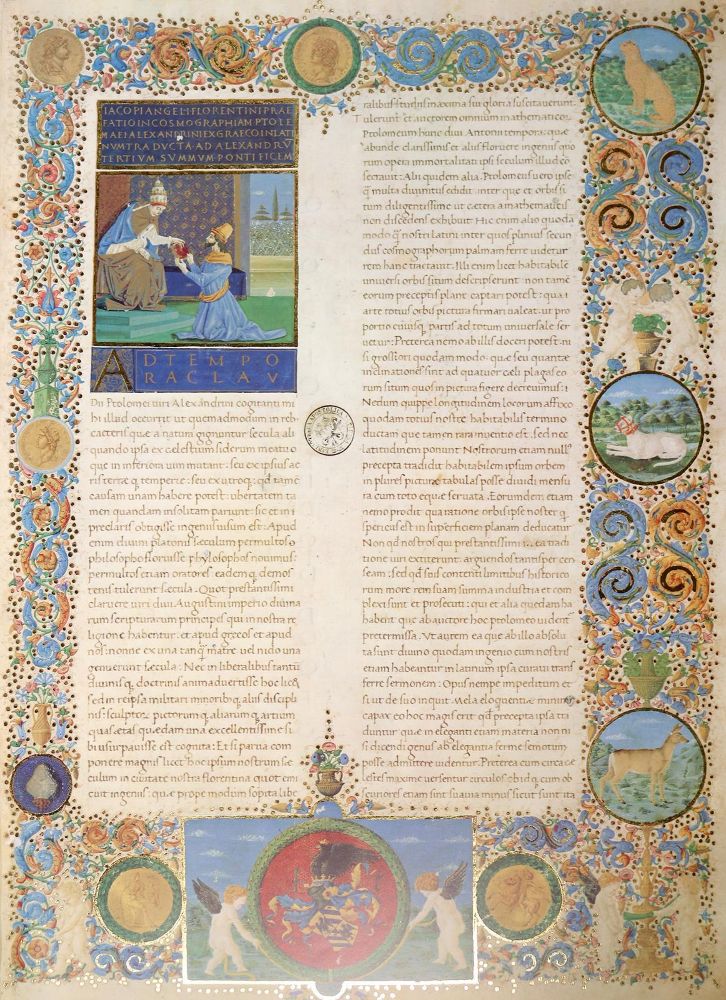 IACOPI ANGELI FLORENTINI PRAE
FATIO IN COSMOGRAPHIAM PTOLE
MAEI ALEXANDRINI EX GRAECO IN LATI
NVM TRADVCTA AD ALEXANDRV
TERTIVM SVMMVM PONTIFICEM
AD TEMPO
RA CLAV
Dii Ptolemei viri Alexandrini cogitanti mi
hi illud occurrit ut quemadmodum in reb
cæteris quæ a natura gignuntur sæcula ali
quando ipsa ex cælestium siderum meatu
que in inferiora vim mutant: seu ex ipsius ae
ris terræ temperie: seu ex utroq; qd tamē
causam unam habere potest: ubertatem ta
men quandam insolitam pariunt: sic et in i
preclaris obtigisse ingeniis visum est: Apud
enim divini platonis sæculum permultos
philosophos floruisse phylosophos novimus:
permultos etiam oratores eadem q; demos
tenis tulerunt sæcula: Quot prestantissimi
claruere viri divi Augusti imperio divina
rum scripturarum principes qui in nostra re
ligione habentur: et apud grecos et apud
nos: nonne ex una tanq; matre vel nido una
genuerunt sæcula: Nec in liberalibus tantū
divinisq; doctrinis animadvertisse hoc lic&
sed in re ipsa militari minoribq; aliis discipli
nis: sculptor pictorum q; aliarum q; artium
quas ætas quædam una excellentissime si
bi usurpavisse est cognita: Et si parva com
ponere magnis licet hoc ipsum nostrum sæ
culum in civitate nostra florentina quot emi
cuit ingeniis: quæ prope modum sopita libe
ralibus studiis maxima sui gloria suscitaverunt
Tulerunt et auctorem omnium in mathematicorum
Ptolomeum hunc divi Antonii tempora: quæ
abunde clarissimis et aliis floruere ingeniis quo
rum opera immortalitati ipsi seculum illud co
secravit: Alii quidem alia. Ptolomeus vero ipse
q; multa divinitus edidit: inter que et orbis si
tum diligentissime ut cætera a mathematicis
non discedens exhibuit Hic enim alio quoda
modo q; nostri latini inter quos plinius secun
dus cosmographorum palmam ferre videtur
rem hanc tractavit. Illi enim licet habitabile
universi orbis situm descripserunt: non tamē
eorum preceptis plane captari potest: qua
arte totius orbis pictura firmari valeat: ut pro
portio cuiusq; partis ad totum universale ser
vetur: Preterea nemo ab illis doceri potest: ni
si grossiori quodam modo: que seu quantæ
inclinationes sint ad quatuor celi plagas eo
rum situm quos in pictura figere decrevimus:
Nedum quippe longitudinem locorum affixo
quodam totius nostre habitabilis termino
ductam que tamen rara inventio est: sed nec
latitudinem ponunt Nostrorum etiam null
precepta tradidit habitabilem ipsum orbem
in plures picturæ tabulas posse dividi: mensu
ra cum toto eque servata. Eorumdem etiam
nemo prodit qua ratione orbis ipse noster q;
spericus est in superficiem planam deducatur
Non qd nostros qui prestantissimi in ea tradi
tione viri extiterunt: arguendos tantisper cen
seam: sed qd suis contenti limitibus historico
rum more rem suam summa industria et com
plexi sint et prosecuti: qui et alia quædam ha
habent que ab auctore hoc ptolomeo videnr
pretermissa. Ut autem ea que ab illo absolu
ta sunt divino quodam ingenio cum nostris
etiam habeantur in latinum ipsa curavi trans
ferre sermonem: Opus nempe impeditum et
si ut de suo inquit Mela eloquentiæ minime
capax eo hoc magis erit qd precepta ipsa tra
duntur quæ in eleganti etiam materia non ni
si dicendi genus ab elegantia ferme semotum
posse admittere videntur. Preterea cum circa cæ
lestes maxime versentur circulos: ob id q; cum ob
scuriores etiam sint sua vi a minus sicut sunt ita